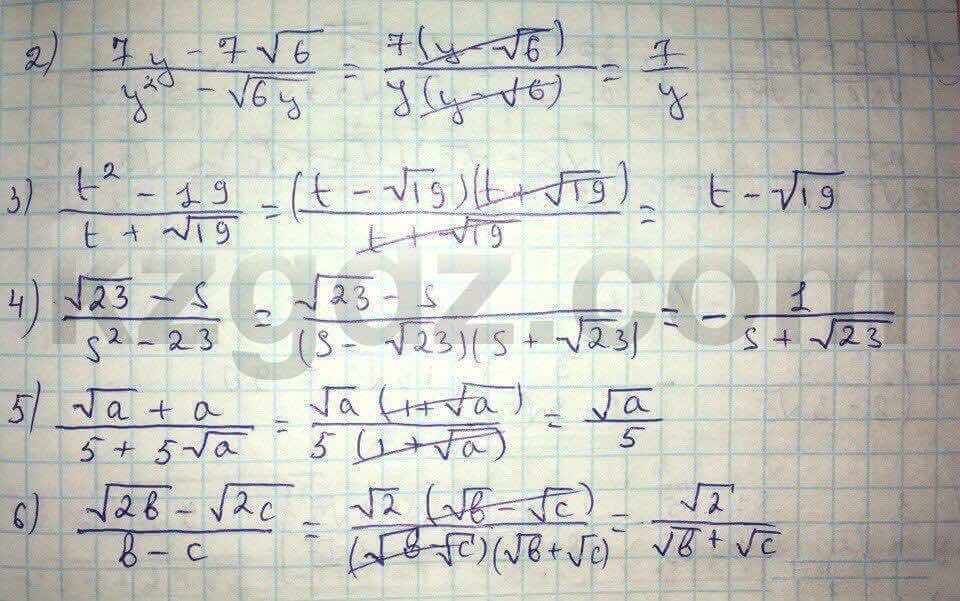 2) (7y - 7√6)/(y² - √6y) = (7(y - √6))/(y(y - √6)) = 7/y
3) (t² - 19)/(t + √19) = ((t - √19)(t + √19))/(t + √19) = t - √19
4) (√23 - s)/(s² - 23) = (√23 - s)/((s - √23)(s + √23)) = - 1/(s + √23)
kzgdz.com
5) (√a + a)/(5 + 5√a) = (√a (1 + √a))/(5 (1 + √a)) = √a/5
6) (√2b - √2c)/(b - c) = (√2 (√b - √c))/((√b - √c)(√b + √c)) = √2/(√b + √c)